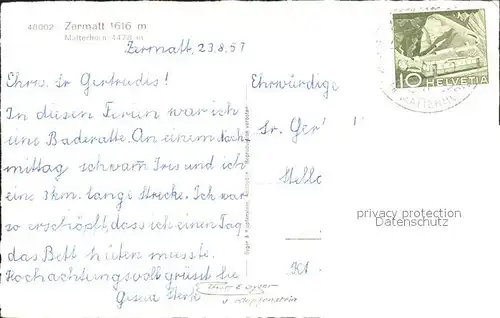 40002 Zermatt 1616 m
Matterhorn 4478 m
Zermatt, 23.8.57
Ehrw. Sr Gertrudis!
In diesen Ferien war ich
eine Baderatte. An einem Nach-
mittag schwam Iris und ich
eine 3km. langi Strecke. Ich war
so erschöpft, dass ich einen Tag
das Bett hüten musste.
Hochachtungsvoll grüsst Sie
Ehrwürdige
Sr. Ger
Stella
10 HELVETIA
privacy protection
Datenschutz